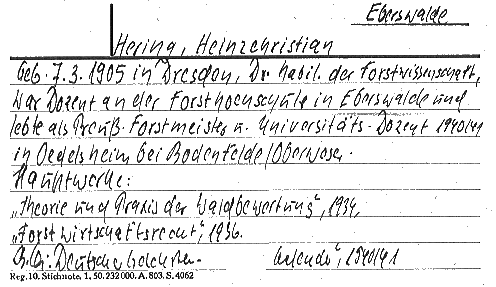 Eberswalde
Hering, Heinzchristian
geb. 7.3.1905 in Dresden, Dr. habil. der Forstwissenschaft,
war Dozent an der Forsthochschule in Eberswalde und
lebte als Preuß. Forstmeister u. Universitäts-Dozent 1940/41
in Oedelsheim bei Bodenfelde/Oberweser.
Hauptwerke:
„Theorie und Praxis der Waldbewertung", 1934,
„Forstwirtschaftsrecht", 1936.
Deutscher Gelehrten- kalender", 1940/41
Reg. 10. Stichnote. 1. 50. 232 000. A. 803. S. 4062